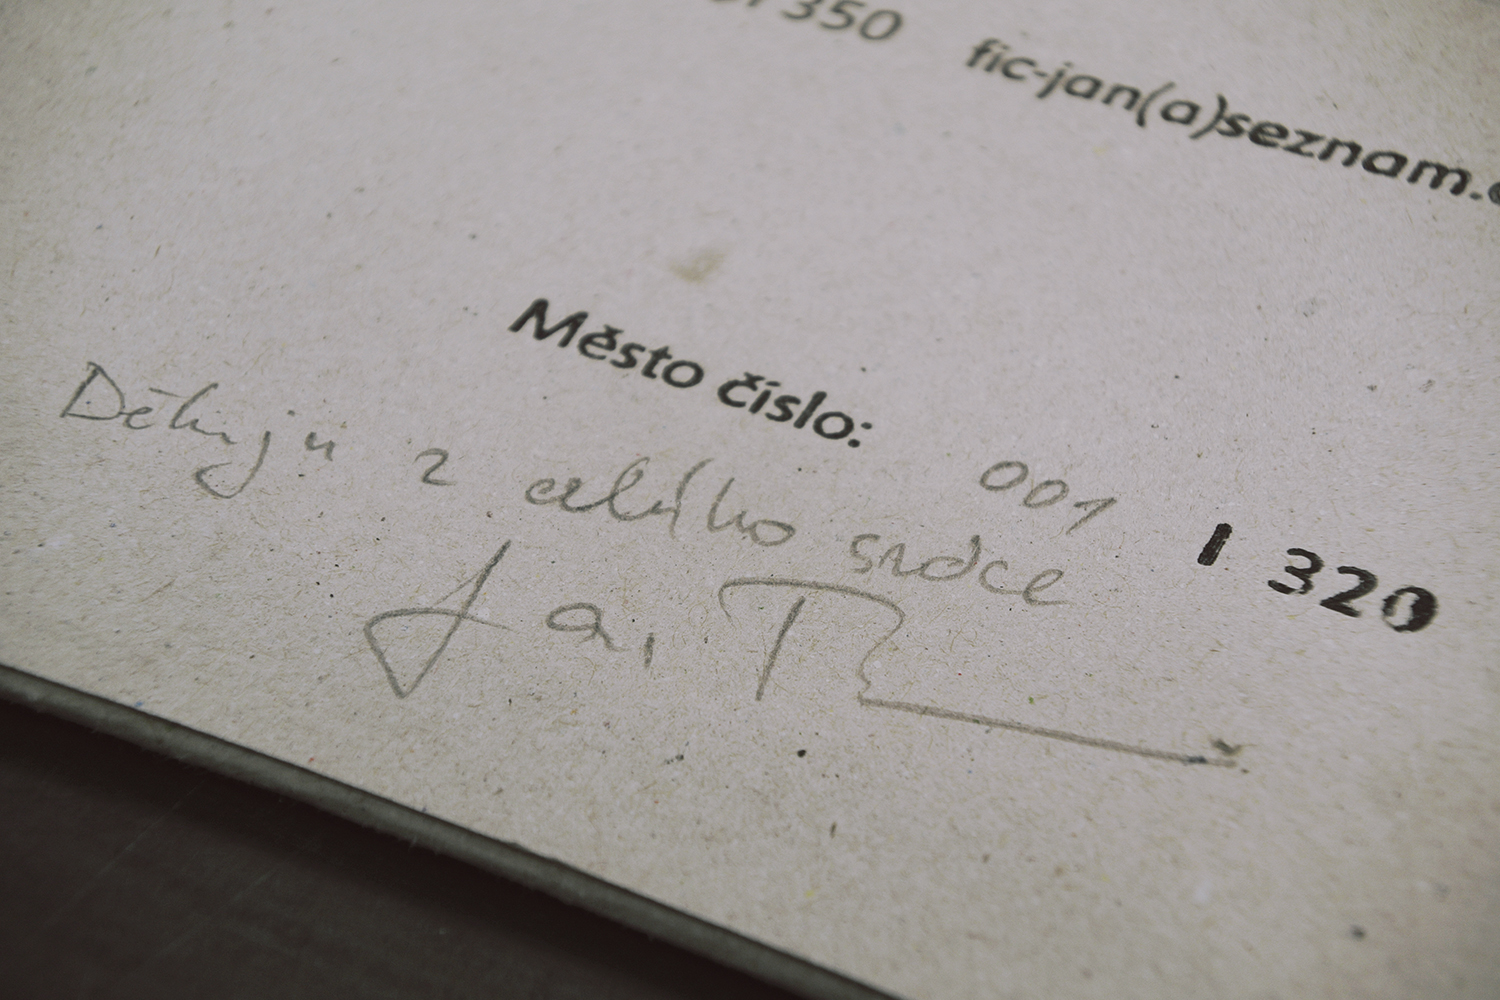 350 fic-jan(a)seznam.
Město číslo: 001 / 320
Děkuju z celého srdce
Jan